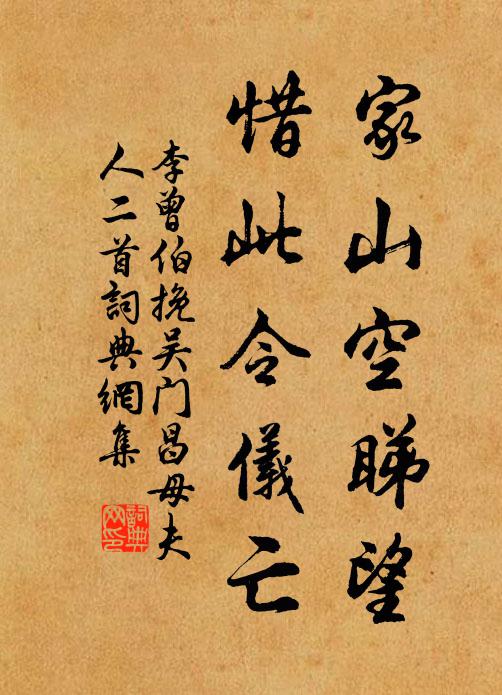 家山空睇望
惜此令儀亡
李曾伯挽吴门昌母夫
人二首詞典網集
詞典
网印